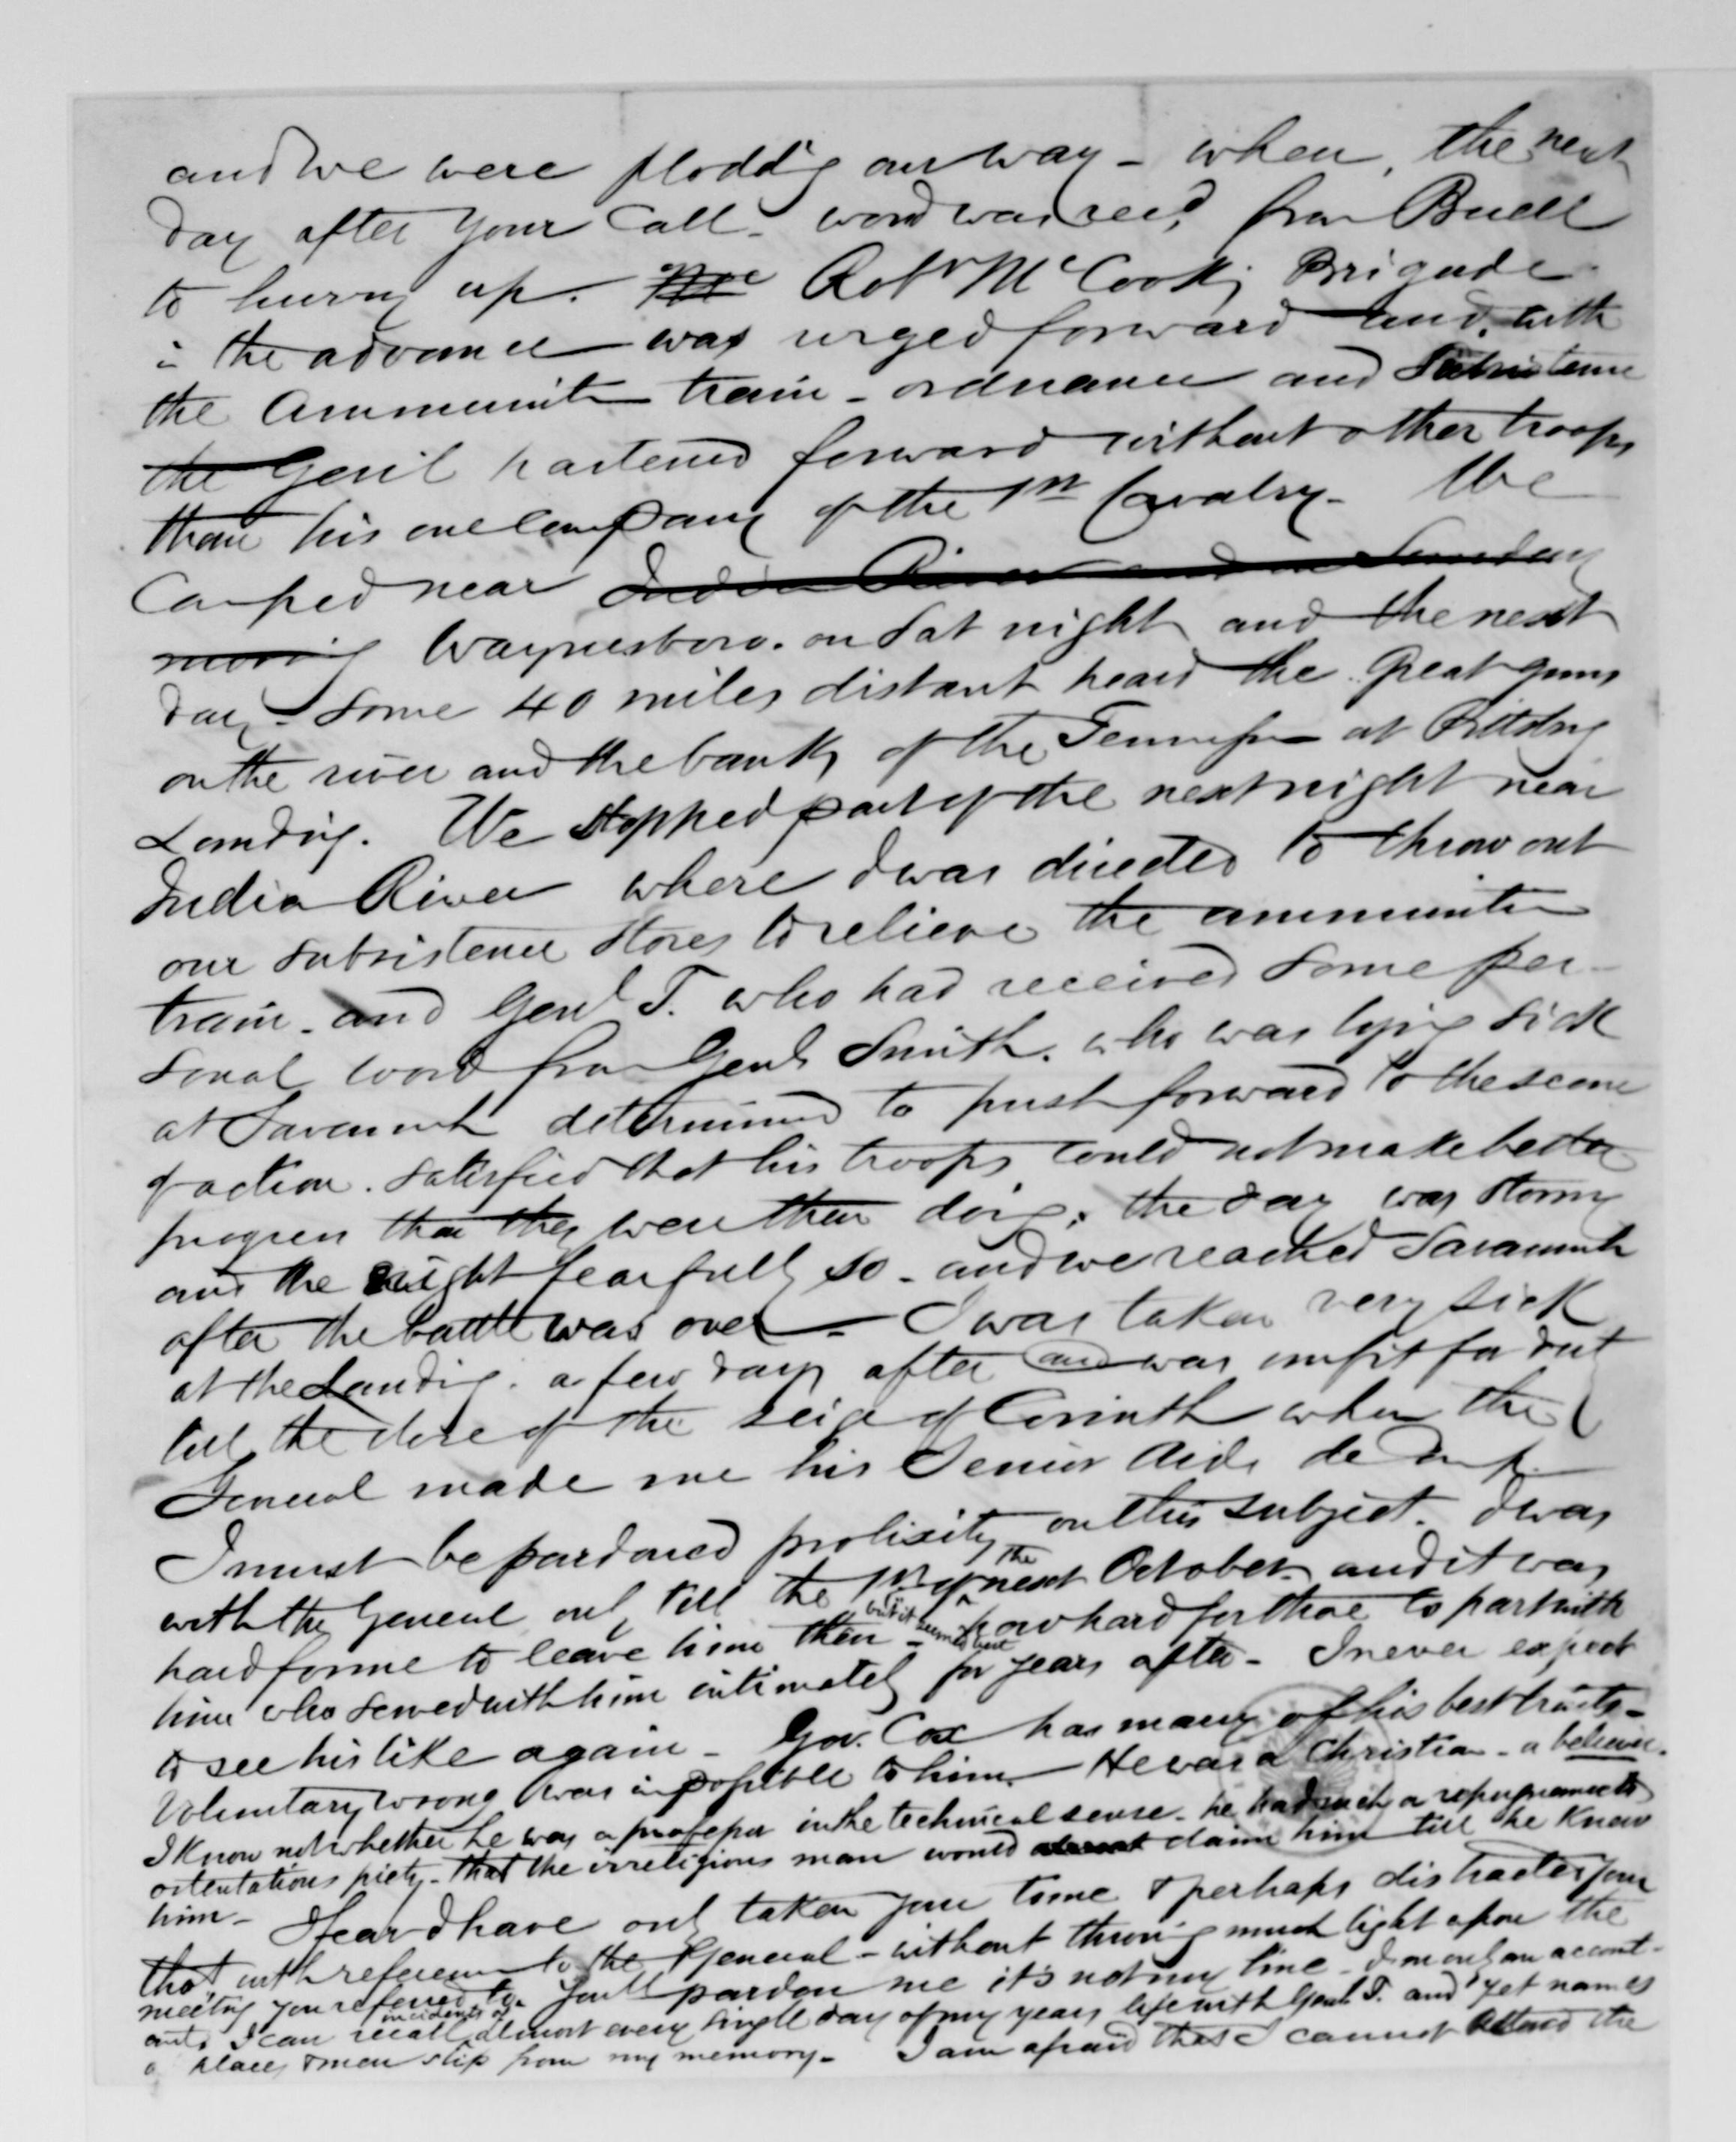 and we were plodd'g our way - when, the next
day after your call - word was rec'd from Buell
to hurry up. The Rob't McCook's Brigade
in the advance was urged forward and, with
the ammunition train - ordnance and subsistence
the Gen'l hastened forward without other troops
than his one company of the 1st Cavalry - We
Camped near Indian River and on Sunday
morning Waynesboro. on Sat night and the next
day - some 40 miles distant heard the great guns
on the river and the banks of the Tennessee at Pittsburg
Landing. We stopped part of the next night near
Indian River where I was directed to throw out
our subsistence stores to relieve the ammunition
train - and Gen'l T. who had received some per-
sonal word from Gen'l Smith. who was lying sick
at Savannah determined to push forward to the scene
of action. satisfied that his troops could not make better
progress than they were then doing. the day was stormy
and the night fearfully so - and we reached Savannah
after the battle was over - I was taken very sick
at the Landing. a few days after and was unfit for duty
till the close of the seige of Corinth when the
General made me his Senior Aide de Camp
I must be pardoned prolixity on this subject. I was
with the General only till the 1st of the next October and it was
hard for me to leave him then - but it seemed best how hard for those to part with
him who served with him intimately for years after - I never expect
to see his like again - Gov. Cox has many of his best traits -
Voluntary wrong was impossible to him - He was a Christian - a believer.
I know not whether he was a professor in the technical sense - he had such a repugnance to
ostentatious piety - that the irreligious man would claim him till he knew
him - I fear I have only taken your time & perhaps distracted your
tho't with reference to the General - without throwing much light upon the
meeting you referred to. You'll pardon me it's not my line - I'm only an account-
ant. I can recall incidents of almost every single day of my years life with Gen'l T. and yet names
of places & men slip from my memory - I am afraid that I cannot attend the